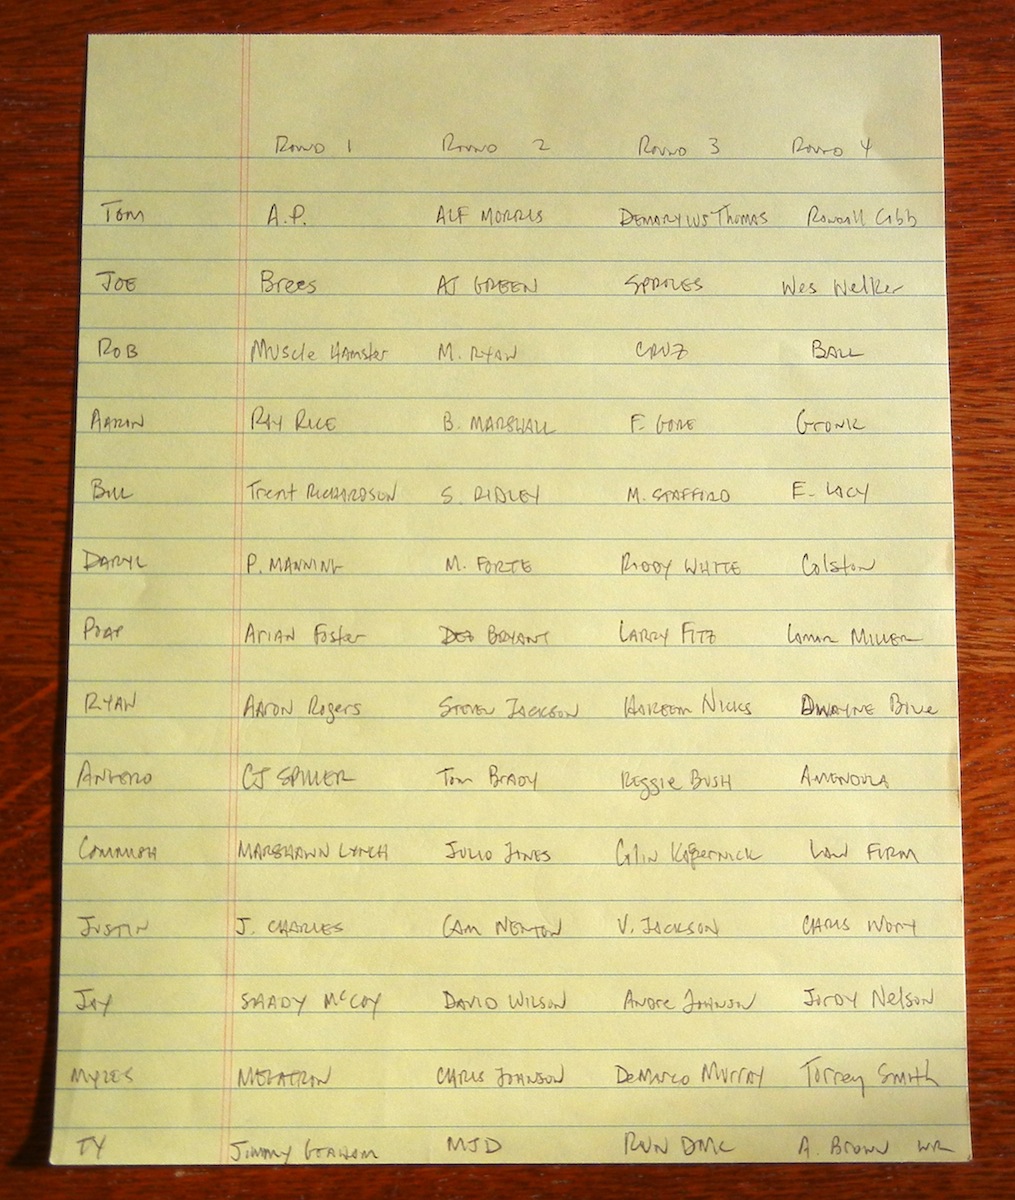 Round 1 Round 2 Round 3 Round 4
Tom A.P. ALF MORRIS DEMARYIUS THOMAS Randall Cobb
JOE Brees AJ GREEN SPROLES Wes Welker
ROB Muscle Hamster M. RYAN CRUZ BALL
AARON RAY RICE B. MARSHALL F. GORE Gronk
BILL Trent RICHARDSON S. RIDLEY M. STAFFORD E. LACY
DARYL P. MANNING M. FORTE RODDY WHITE Colston
Arian Foster DEZ BRYANT LARRY FITZ Lamar MILLER
RYAN AARON Rogers STEVEN JACKSON HAKEEM NICKS DWAYNE Bowe
ANGELO CJ SPILLER Tom BRADY Reggie BUSH AMENDOLA
MARSHAWN LYNCH JULIO JONES Colin Kapernick LAW FIRM
JUSTIN J. CHARLES CAM NEWTON V. JACKSON CHRIS IVORY
JAY SHADY McCOY DAVID WILSON ANDRE JOHNSON JORDY NELSON
MYLES MEGATRON CHRIS JOHNSON DeMARCO MURRAY Torrey Smith
TY Jimmy GRAHAM MJD RUN DMC A. BROWN WR